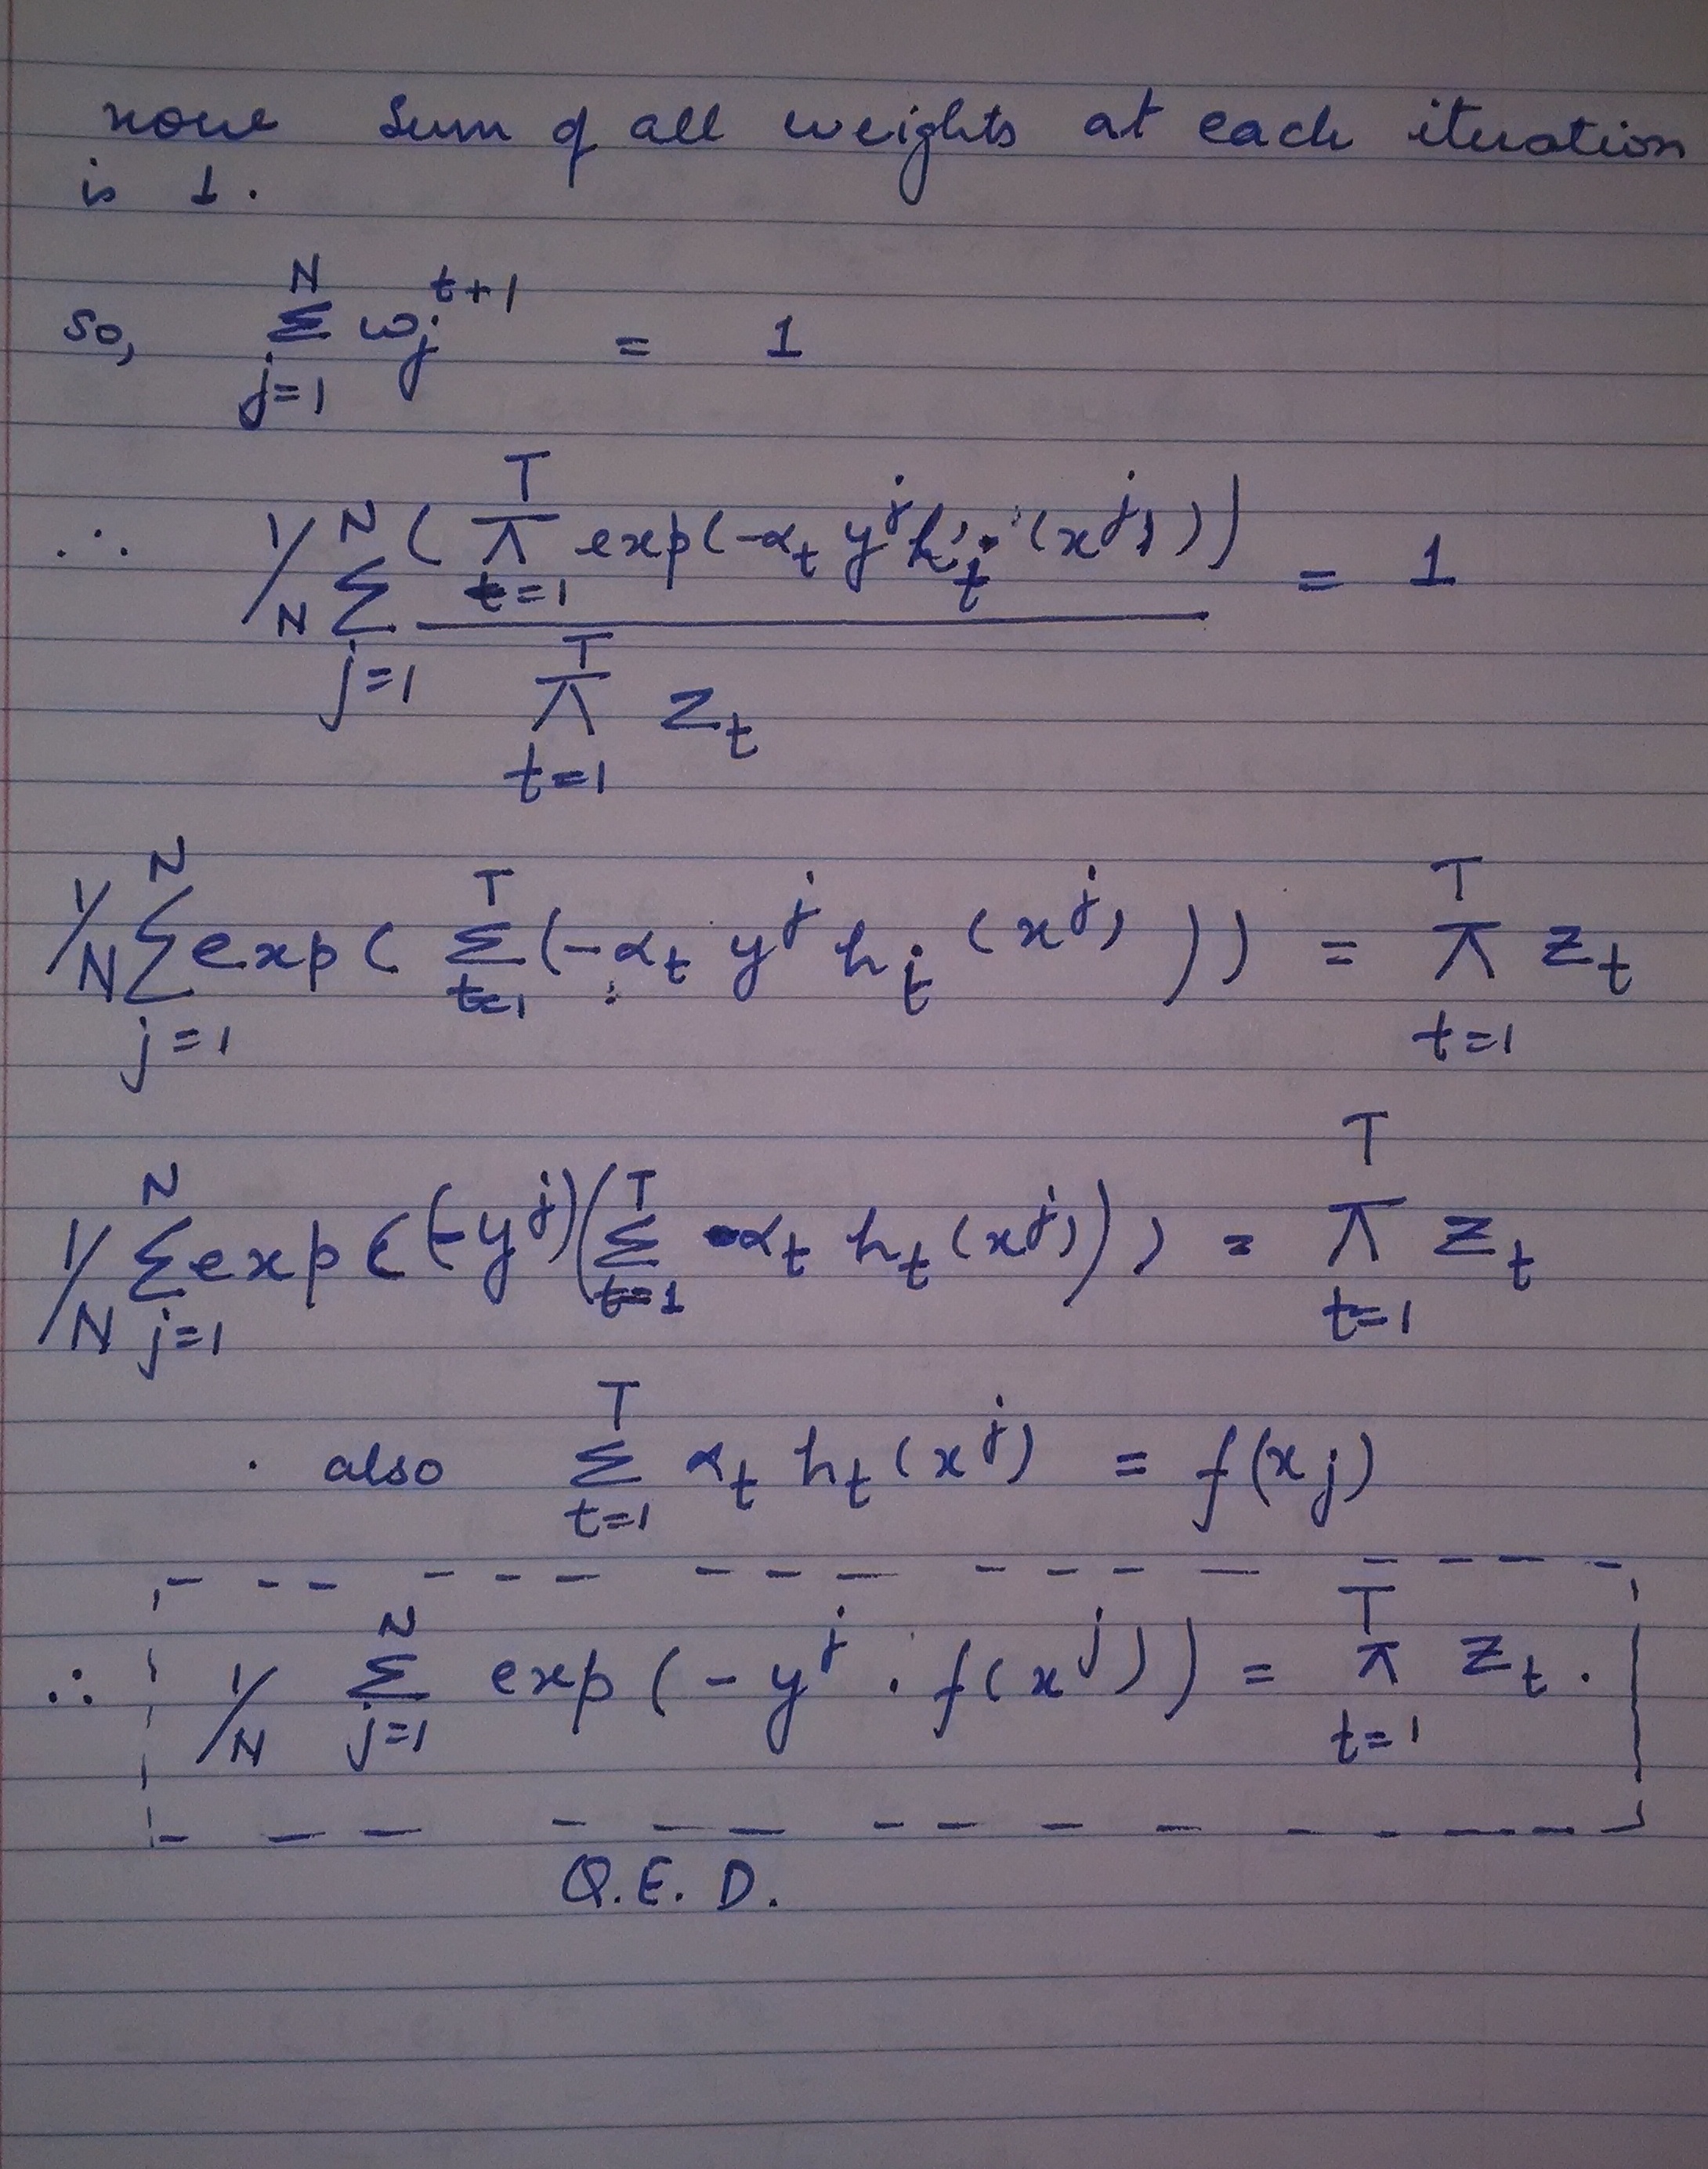 now sum of all weights at each iteration
is 1.
so, N Σ j=1 w_j^{t+1} = 1
∴ 1/N Σ_{j=1}^{N} ( π_{t=1}^{T} exp(-α_t y^j h_t (x^j)) ) / π_{t=1}^{T} z_t = 1
1/N Σ_{j=1}^{N} exp( Σ_{t=1}^{T} (-α_t y^j h_t (x^j) )) = π_{t=1}^{T} z_t
1/N Σ_{j=1}^{N} exp((-y^j)(Σ_{t=1}^{T} α_t h_t (x^j))) = π_{t=1}^{T} z_t
also Σ_{t=1}^{T} α_t h_t (x^j) = f(x_j)
∴ 1/N Σ_{j=1}^{N} exp(-y^j . f(x^j)) = π_{t=1}^{T} z_t.
Q.E.D.